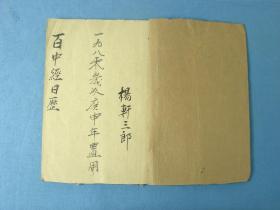 楊斬三郎
一九八零歲次庚申年置用
百中經日歷